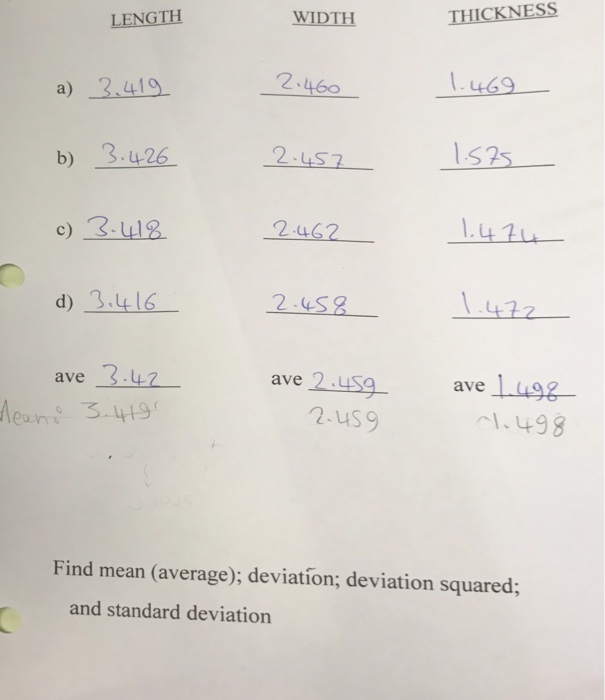 LENGTH WIDTH THICKNESS
a) 3.419 2.460 1.469
b) 3.426 2.457 1.575
c) 3.418 2.462 1.474
d) 3.416 2.458 1.472
ave 3.42 ave 2.459 ave 1.498
Mean: 3.419 2.459 ~1.498
Find mean (average); deviation; deviation squared;
and standard deviation